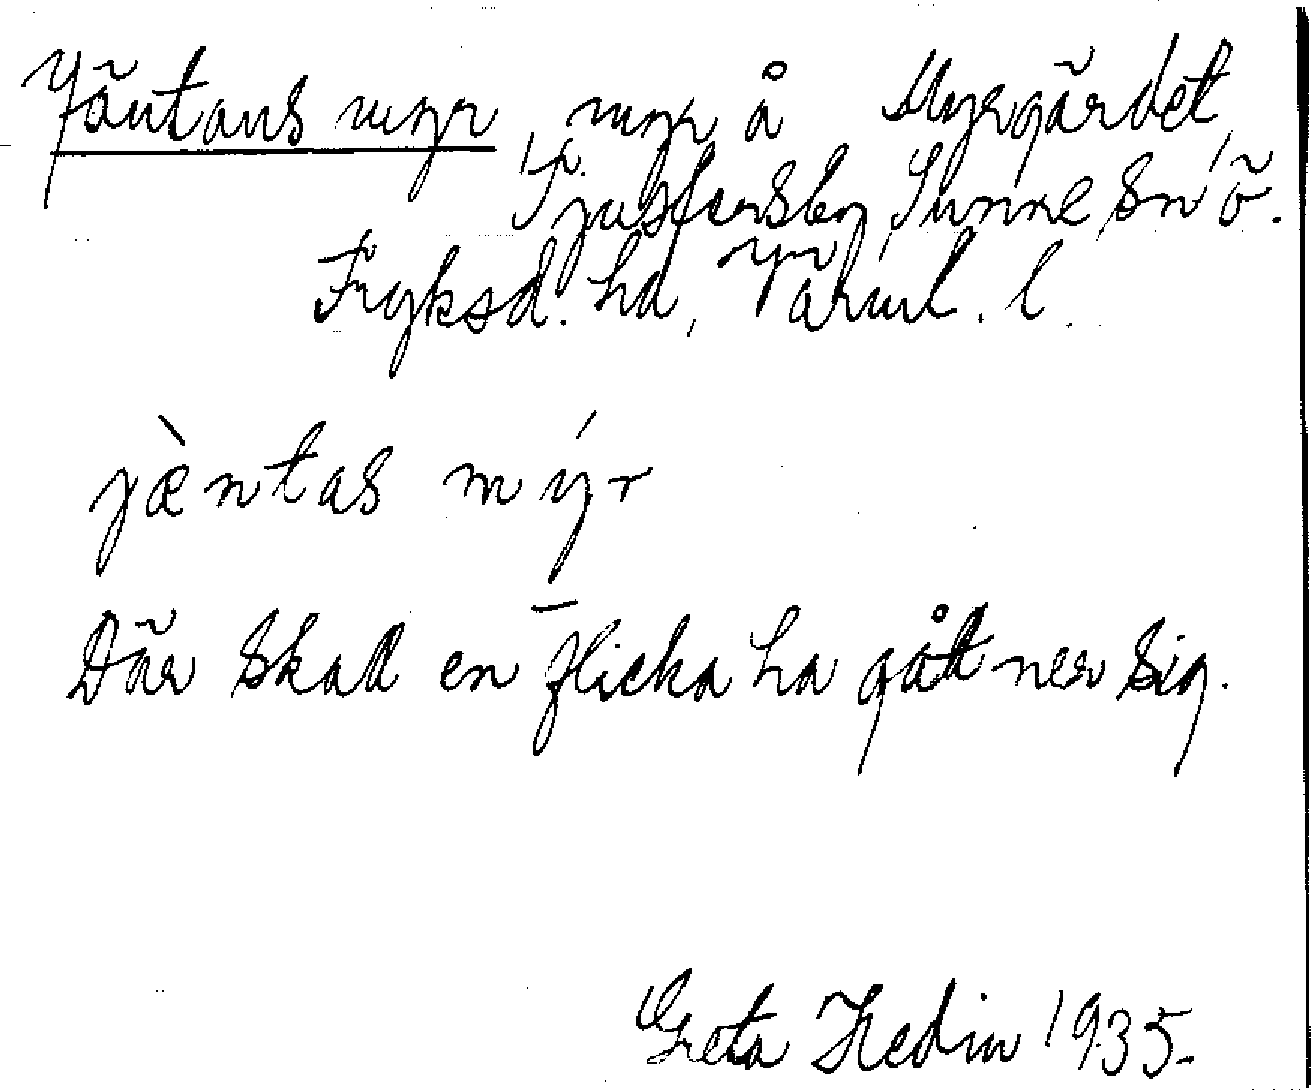 Jäntans myr, myr å Myrgärdet,
Tjustersby, Sunne sn, ö.
Fryksd. hd, Värml. l.
jæ̀ntas mýr
Där skall en flicka ha gått ner sig.
Greta Hedin 1935.